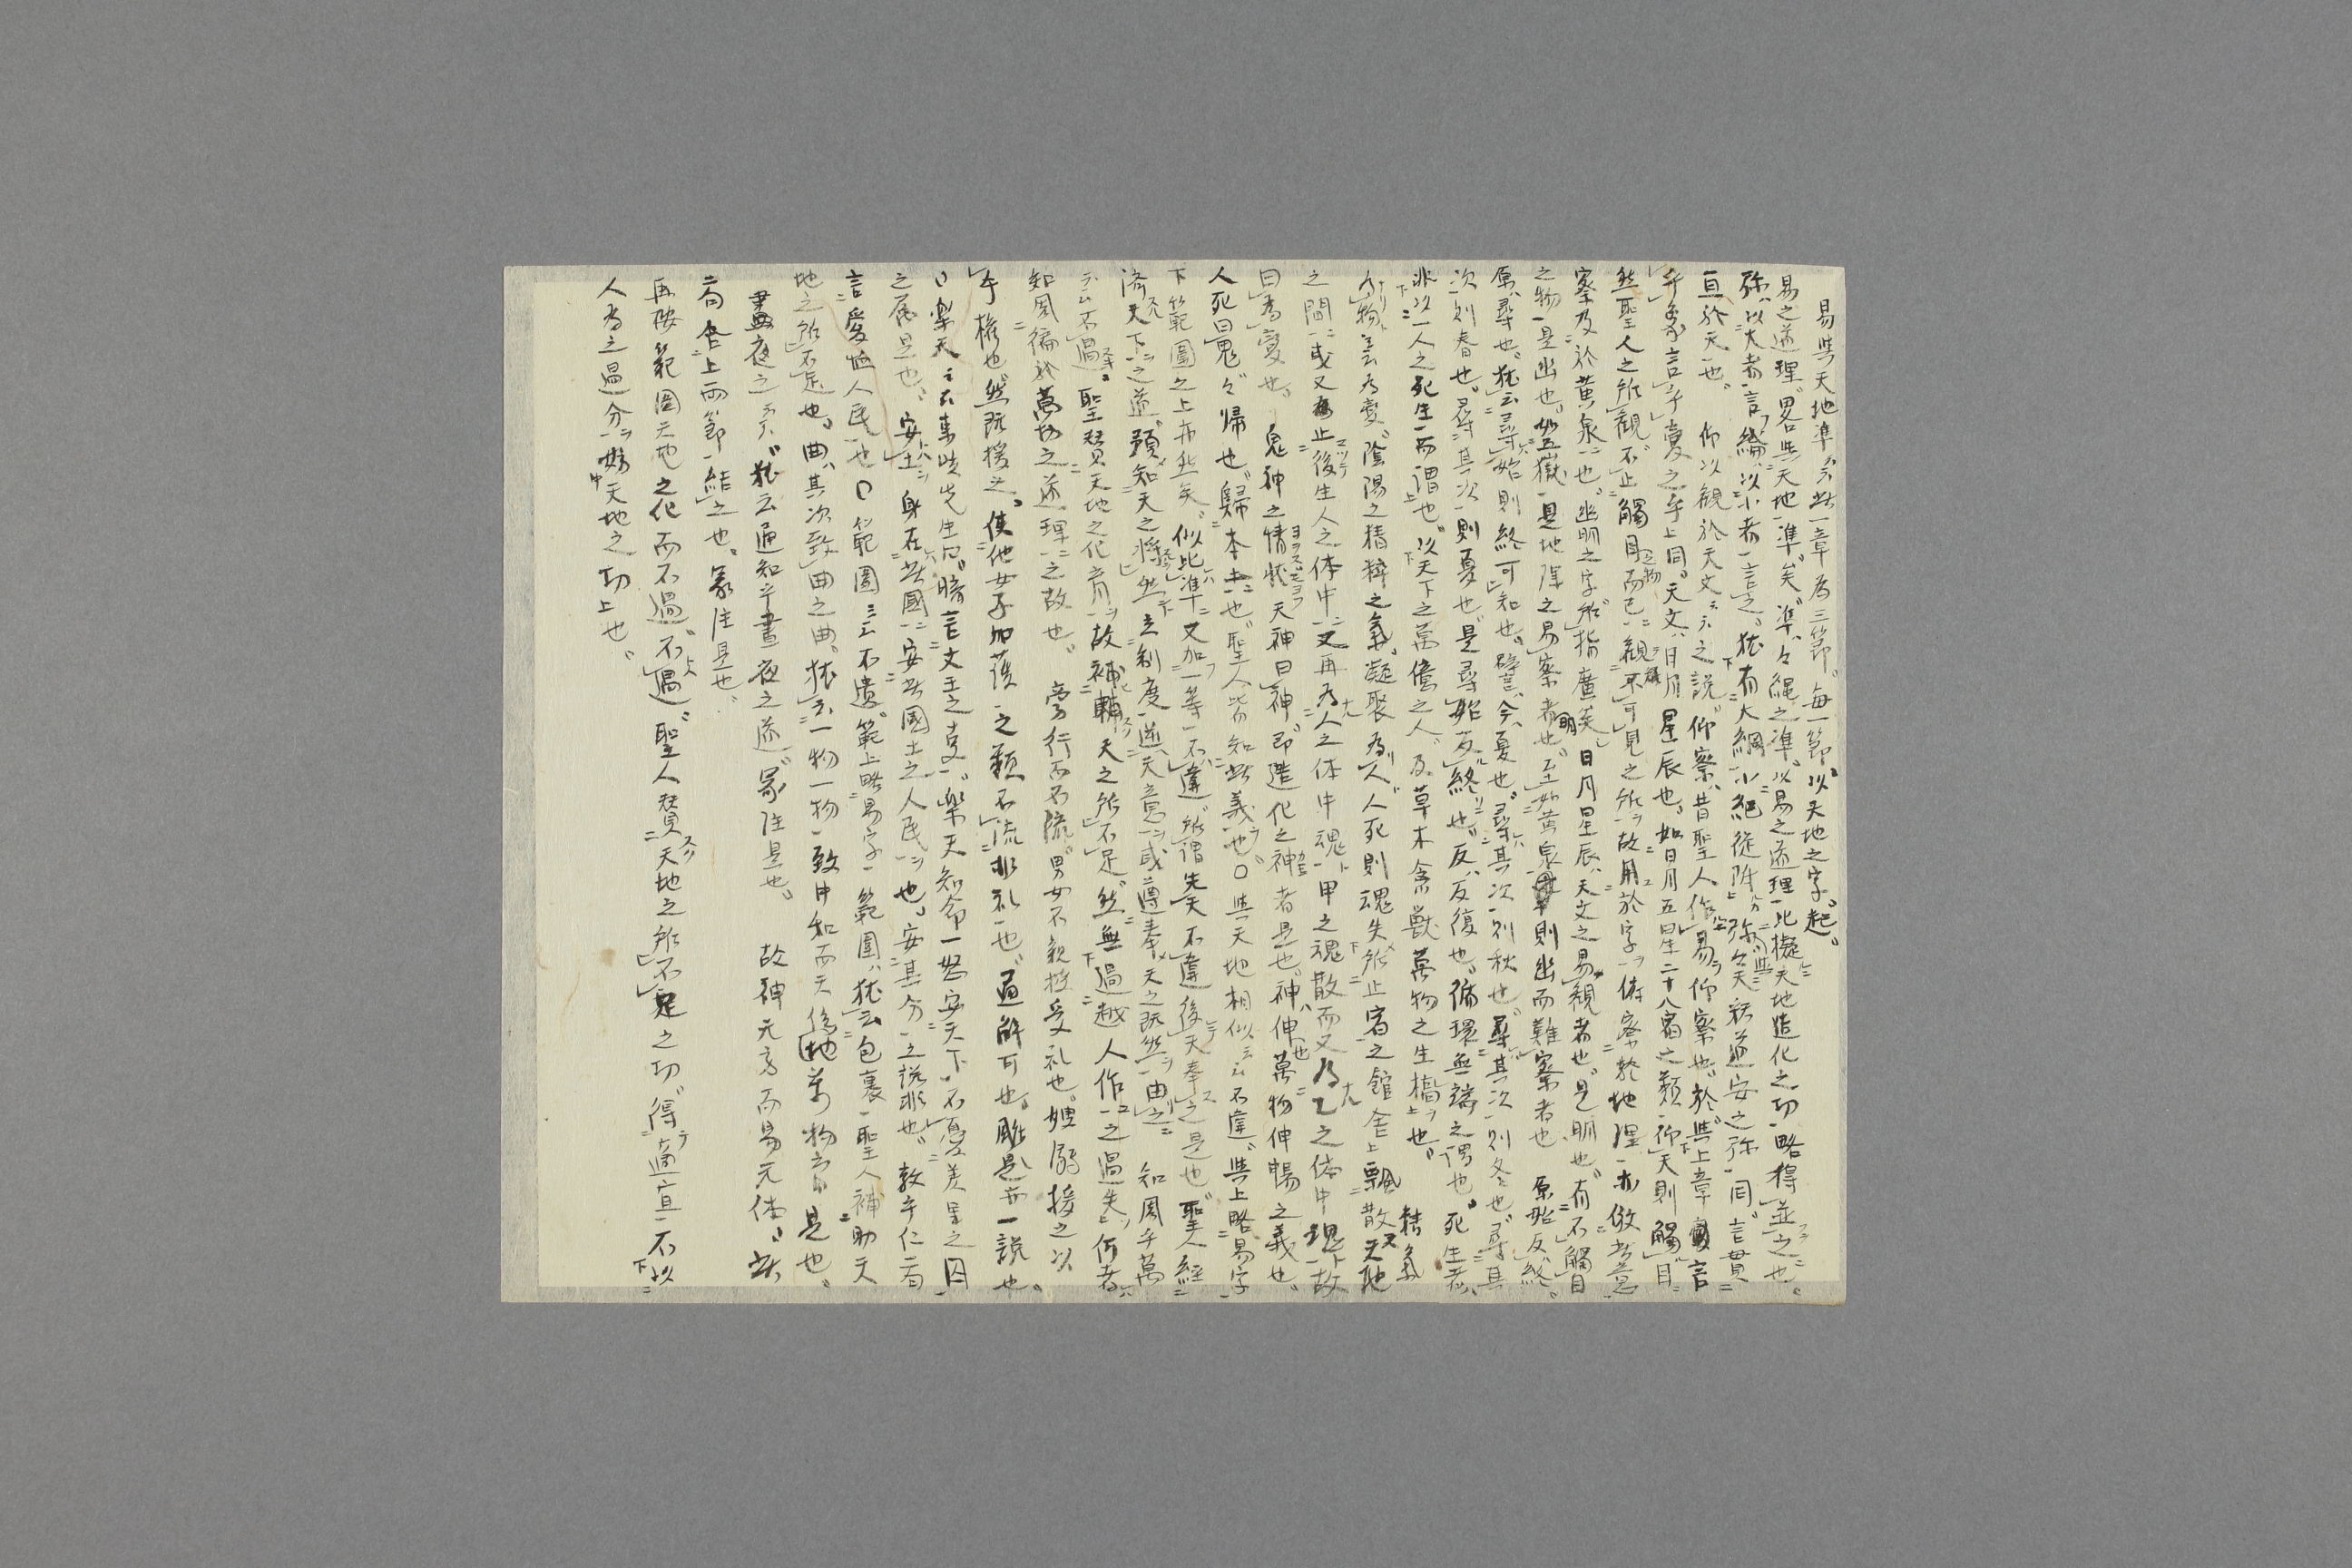 易與天地準云云此一章為三節。每一節以天地之字起。
易之道理畧與天地準矣。準々縄之準。以易之道理比擬天地造化之功略得並之也。
弥以大者言綸以小者言之。猶有大綱小紀從阡弥矣釈道安之弥同。言貫
亘於天也。仰以観於天文云云之說。仰察昔聖人作易仰察也。於與上章言
乎象言乎変之乎上同。天文日月星辰也。如日月五星二十八宿之類仰天則觸目
然聖人之所観不止觸目而已観不可見之所故用於字俯察於地理亦倣此意
察及於黄泉也。幽明之字所指廣矣。日月星辰天文之易観者也。是明也。有不觸目
之物是幽也。如五嶽是地理之易察者明也。至如黄泉則幽而難察者也 原始反終。
原尋也。猶云尋始則終可知也。譬今夏也。尋其次則秋也。尋其次則冬也。尋其
次則春也。尋其次則夏也。是尋始反終也。反反復也。循環無端之謂也。死生者
非以一人之死生而謂也。以天下之萬億之人及草木禽獣萬物之生槁也。 精氣
為物云云為変陰陽之精粹之氣凝聚為人人死則魂失所止宿之館舎上飄散天地
之間或又止後生人之体中又再為人之体中魂甲之魂散而又為乙之体中現故
曰為変也。鬼神之情状天神曰神。即造化之神者是也。神伸也萬物伸暢之義也。
人死曰鬼々帰也歸本土也聖人皆知此義也。○與天地相似云云不違。與上略易字
下範圍之上亦然矣。似比準又加一等不違所謂先天不違後天奉之是也聖人經
済天下之道預知天之將然立制度道天意或遵奉天之既然由之 知周乎萬
云云不過。聖賛天地之化育故補輔天之所不足然無過越人作之過失何者
知周徧於萬物之道理之故也。 旁行而不流男女不親授受礼也。嫂溺援之以
手権也然既援之。使他女子加護之類不流非礼也。通解可也。雖是亦一說也。
○楽天云云東崖先生曰。暗言文王之事。楽天知命一怒安天下不憂羑里之囚
之危是也。安土身在此國安此國土之人民也。安其分之說非也。敦乎仁二句
言愛恤人民也○範圍云云不遺。範上略易字範圍猶云包裹聖人補助天
地之所不足也。曲其次致曲之曲猶云一物一物致中和而天位地萬物育是也。
晝夜之云云猶云通知乎晝夜之道。象注是也。 故神无方而易无体此
二句合上兩節結之也。象注是也
再按範圍天地之化而不過不過聖人賛天地之所不足之功得適宜不以
人為之過分妨天地之功上也。